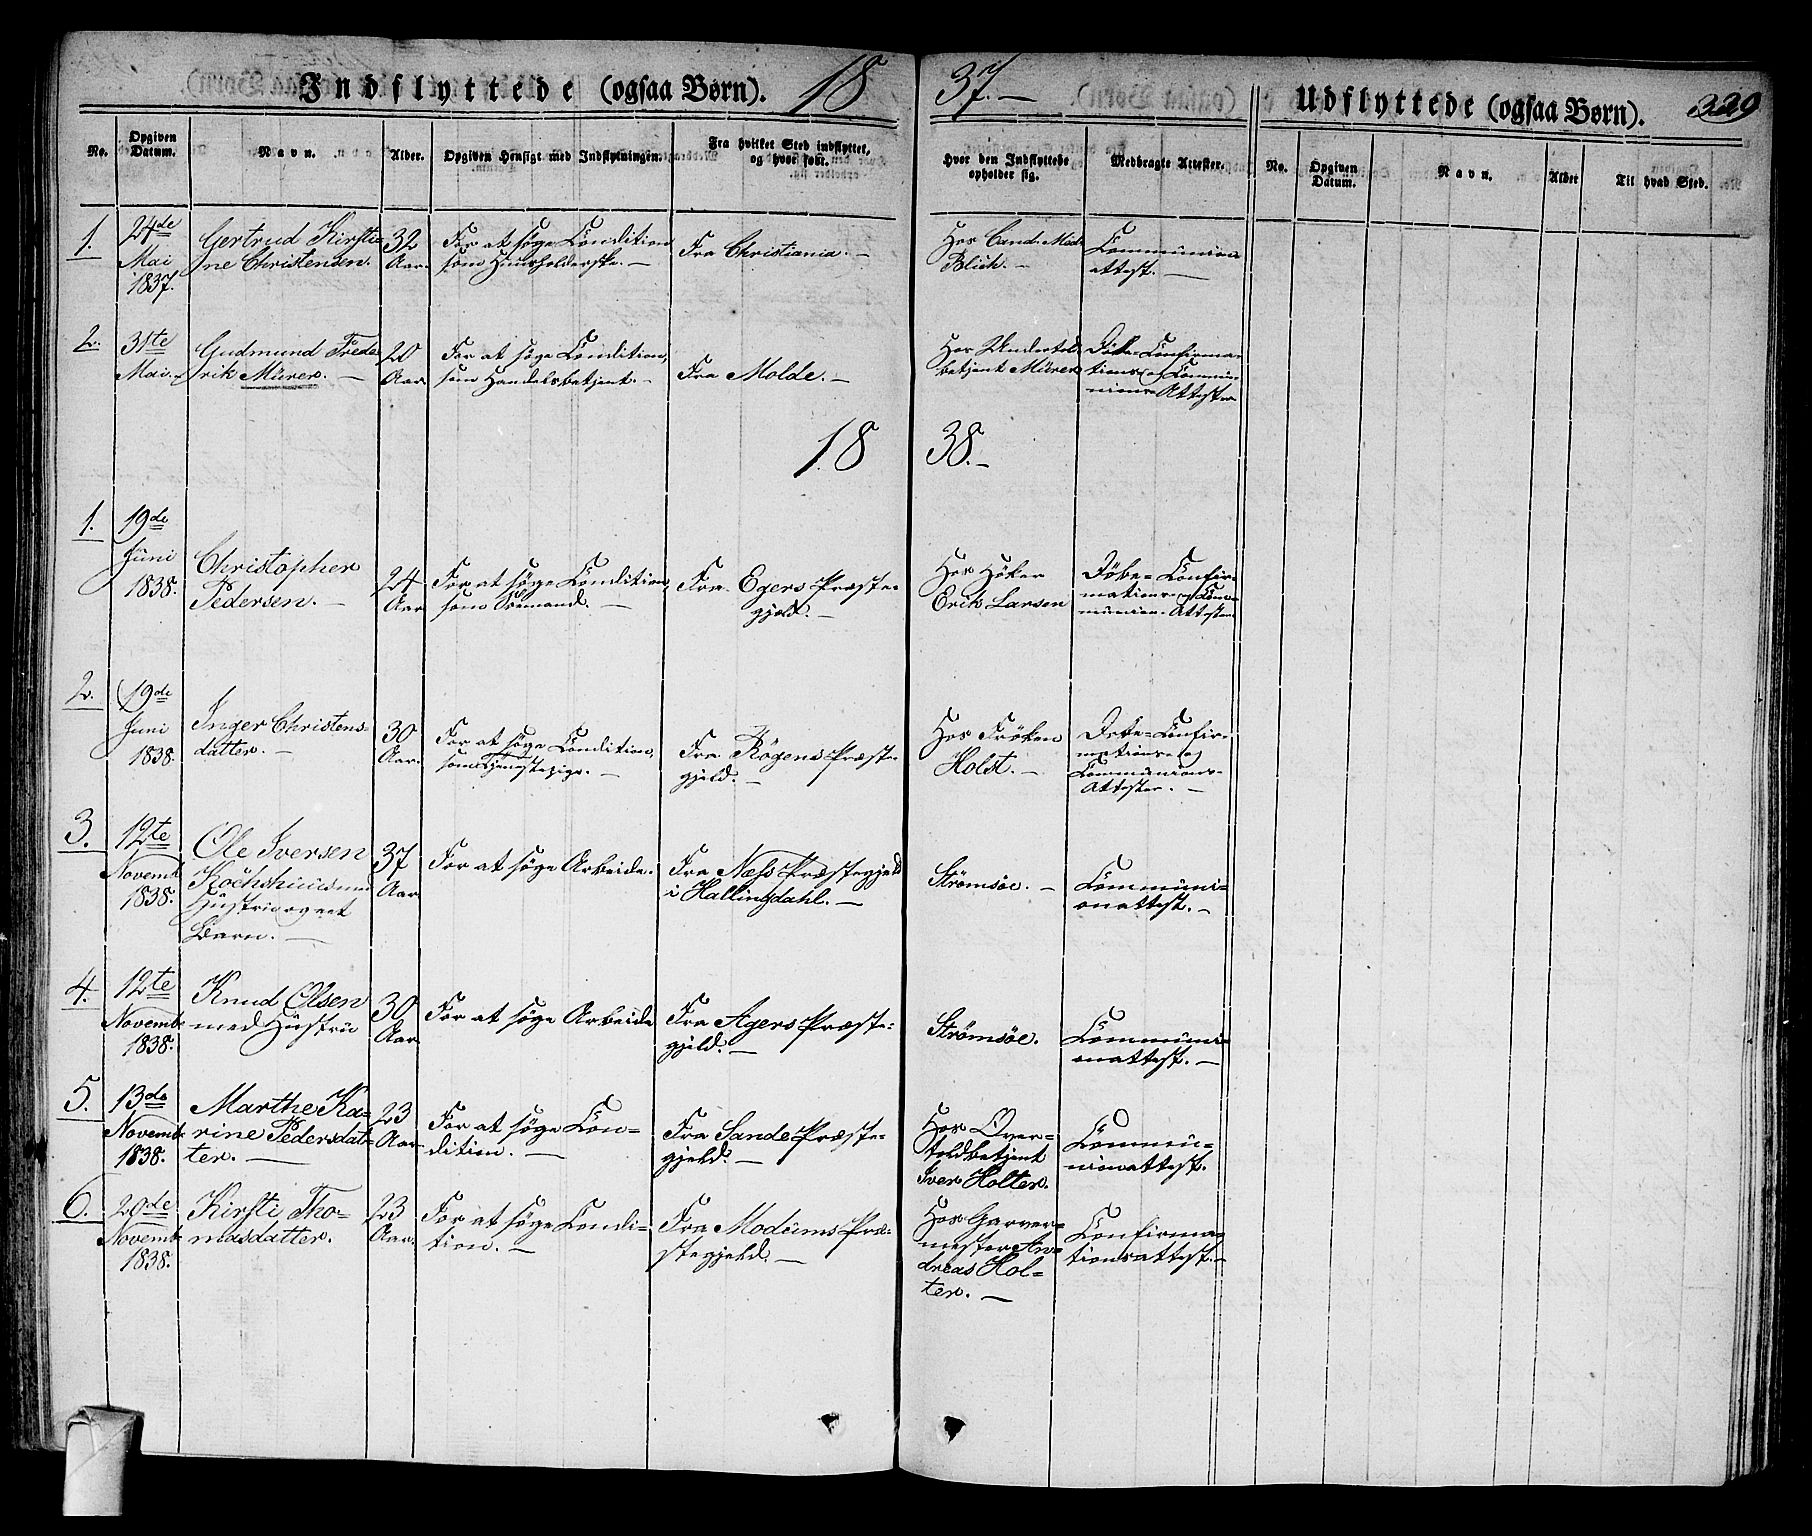 Indflyttede (ogsaa Børn). 18 37.— Udflyttede (ogsaa Børn). 329
No. Opgiven Datum. Navn. Alder. Opgiven Hensigt med Indflytningen. Fra hvilket Sted indflyttet, og hvor født. Hvor den Indflyttede opholder sig. Medbragte Attester. No. Opgiven Datum. Navn. Alder Til hvad Sted.
1. 24de Mai 1837. Gertrud Kirstine Christensen. 32 Aar. For at søge Condition som Huusholderske.— Fra Christiania.— Hos Cand: Blich.— Communionattest.—
2. 31te Mai.— Gudmund Frederik Mürer.— 20 Aar For at søge Condition, som Handelsbetjent.— Fra Molde.— Hos Undertoldbetjent Mürer Döbe- Confirmations- og Communions- Attester
18 38.—
1. 19de Juni 1838. Christopher Pedersen.— 24 Aar For at søge Condition, som Sömand.— Fra Egers Præstegjeld.— Hos Höker Erik Larsen Döbe- Confirmations- og Communions- Attester
2. 19de Juni 1838. Inger Christensdatter.— 30 Aar. For at søge Condition, som Tjenestepige.— Fra Røgens Præstegjeld.— Hos Fröken Holst.— Döbe- Confirmations- og Communions- Attester.—
3. 12te Novemb 1838. Ole Iversen Hustrue og eet Barn.— 37 Aar For at søge Arbeide. Fra Næss Præstegjeld i Hallingdahl.— Strömsöe.— Communionattest.—
4. 12te Novemb 1838. Knud Olsen med Hustru 30 Aar. For at søge Arbeide Fra Agers Præstegjeld.— Strömsöe. Communionattest.—
5. 13de Novemb 1838. Marthe Karine Pedersdatter.— 23 Aar For at søge Condition.— Fra Sande Præstegjeld.— Hos Overtoldbetjent Iver Holter. Communionattest.
6. 20de Novemb 1838. Kirsti Thomasdatter. 23 Aar. For at søge Condition.— Fra Modums Præstegjeld.— Hos Garvermester Andreas Holter.— Confirmationsattest.—